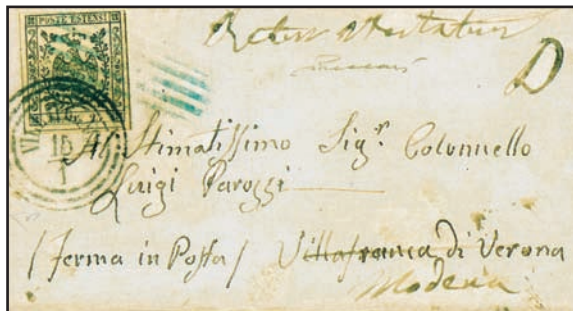 POSTE ESTENSI
D
15
1
Al Stimatissimo Sig.r Colonnello
Luigi Parozzi
/ ferma in Posta / Villafranca di Verona
Modena